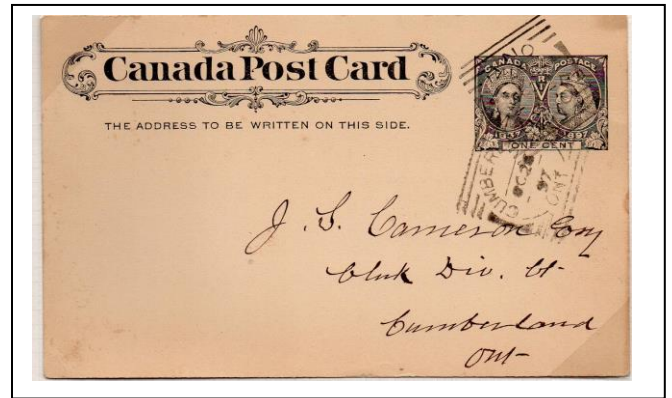 Canada Post Card
THE ADDRESS TO BE WRITTEN ON THIS SIDE.
CANADA POSTAGE
V R
1837 1897
ONE CENT
OC 28
97
ONT
J. S. Cameron Esq
Clerk Div. Ct.
Cumberland
Ont